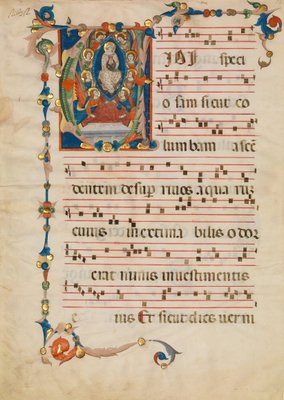 VIDI speci
o sam sicut co
lumbam ascē
dentem desup rivos aqua rum
cuius inextima bilis odor
erat nimis in vestimentis
e ius Et sicut dies verni